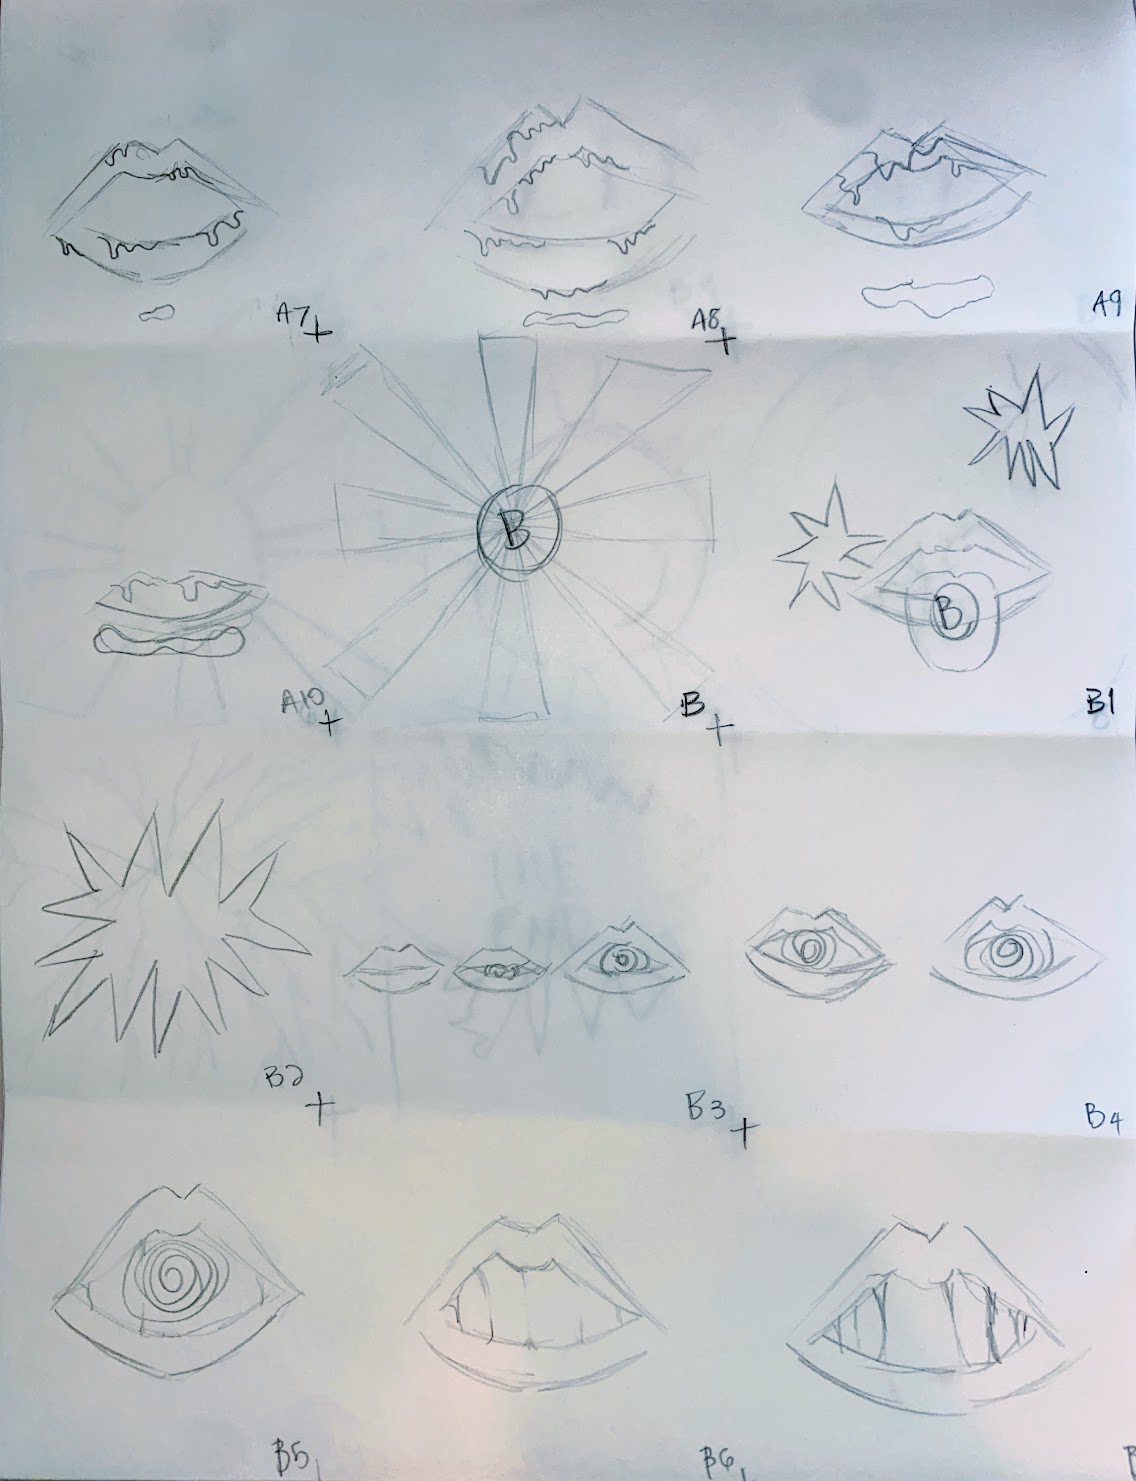 A7
A8
A9
B
B
A10
B
B1
B2
B3
B4
B5
B6